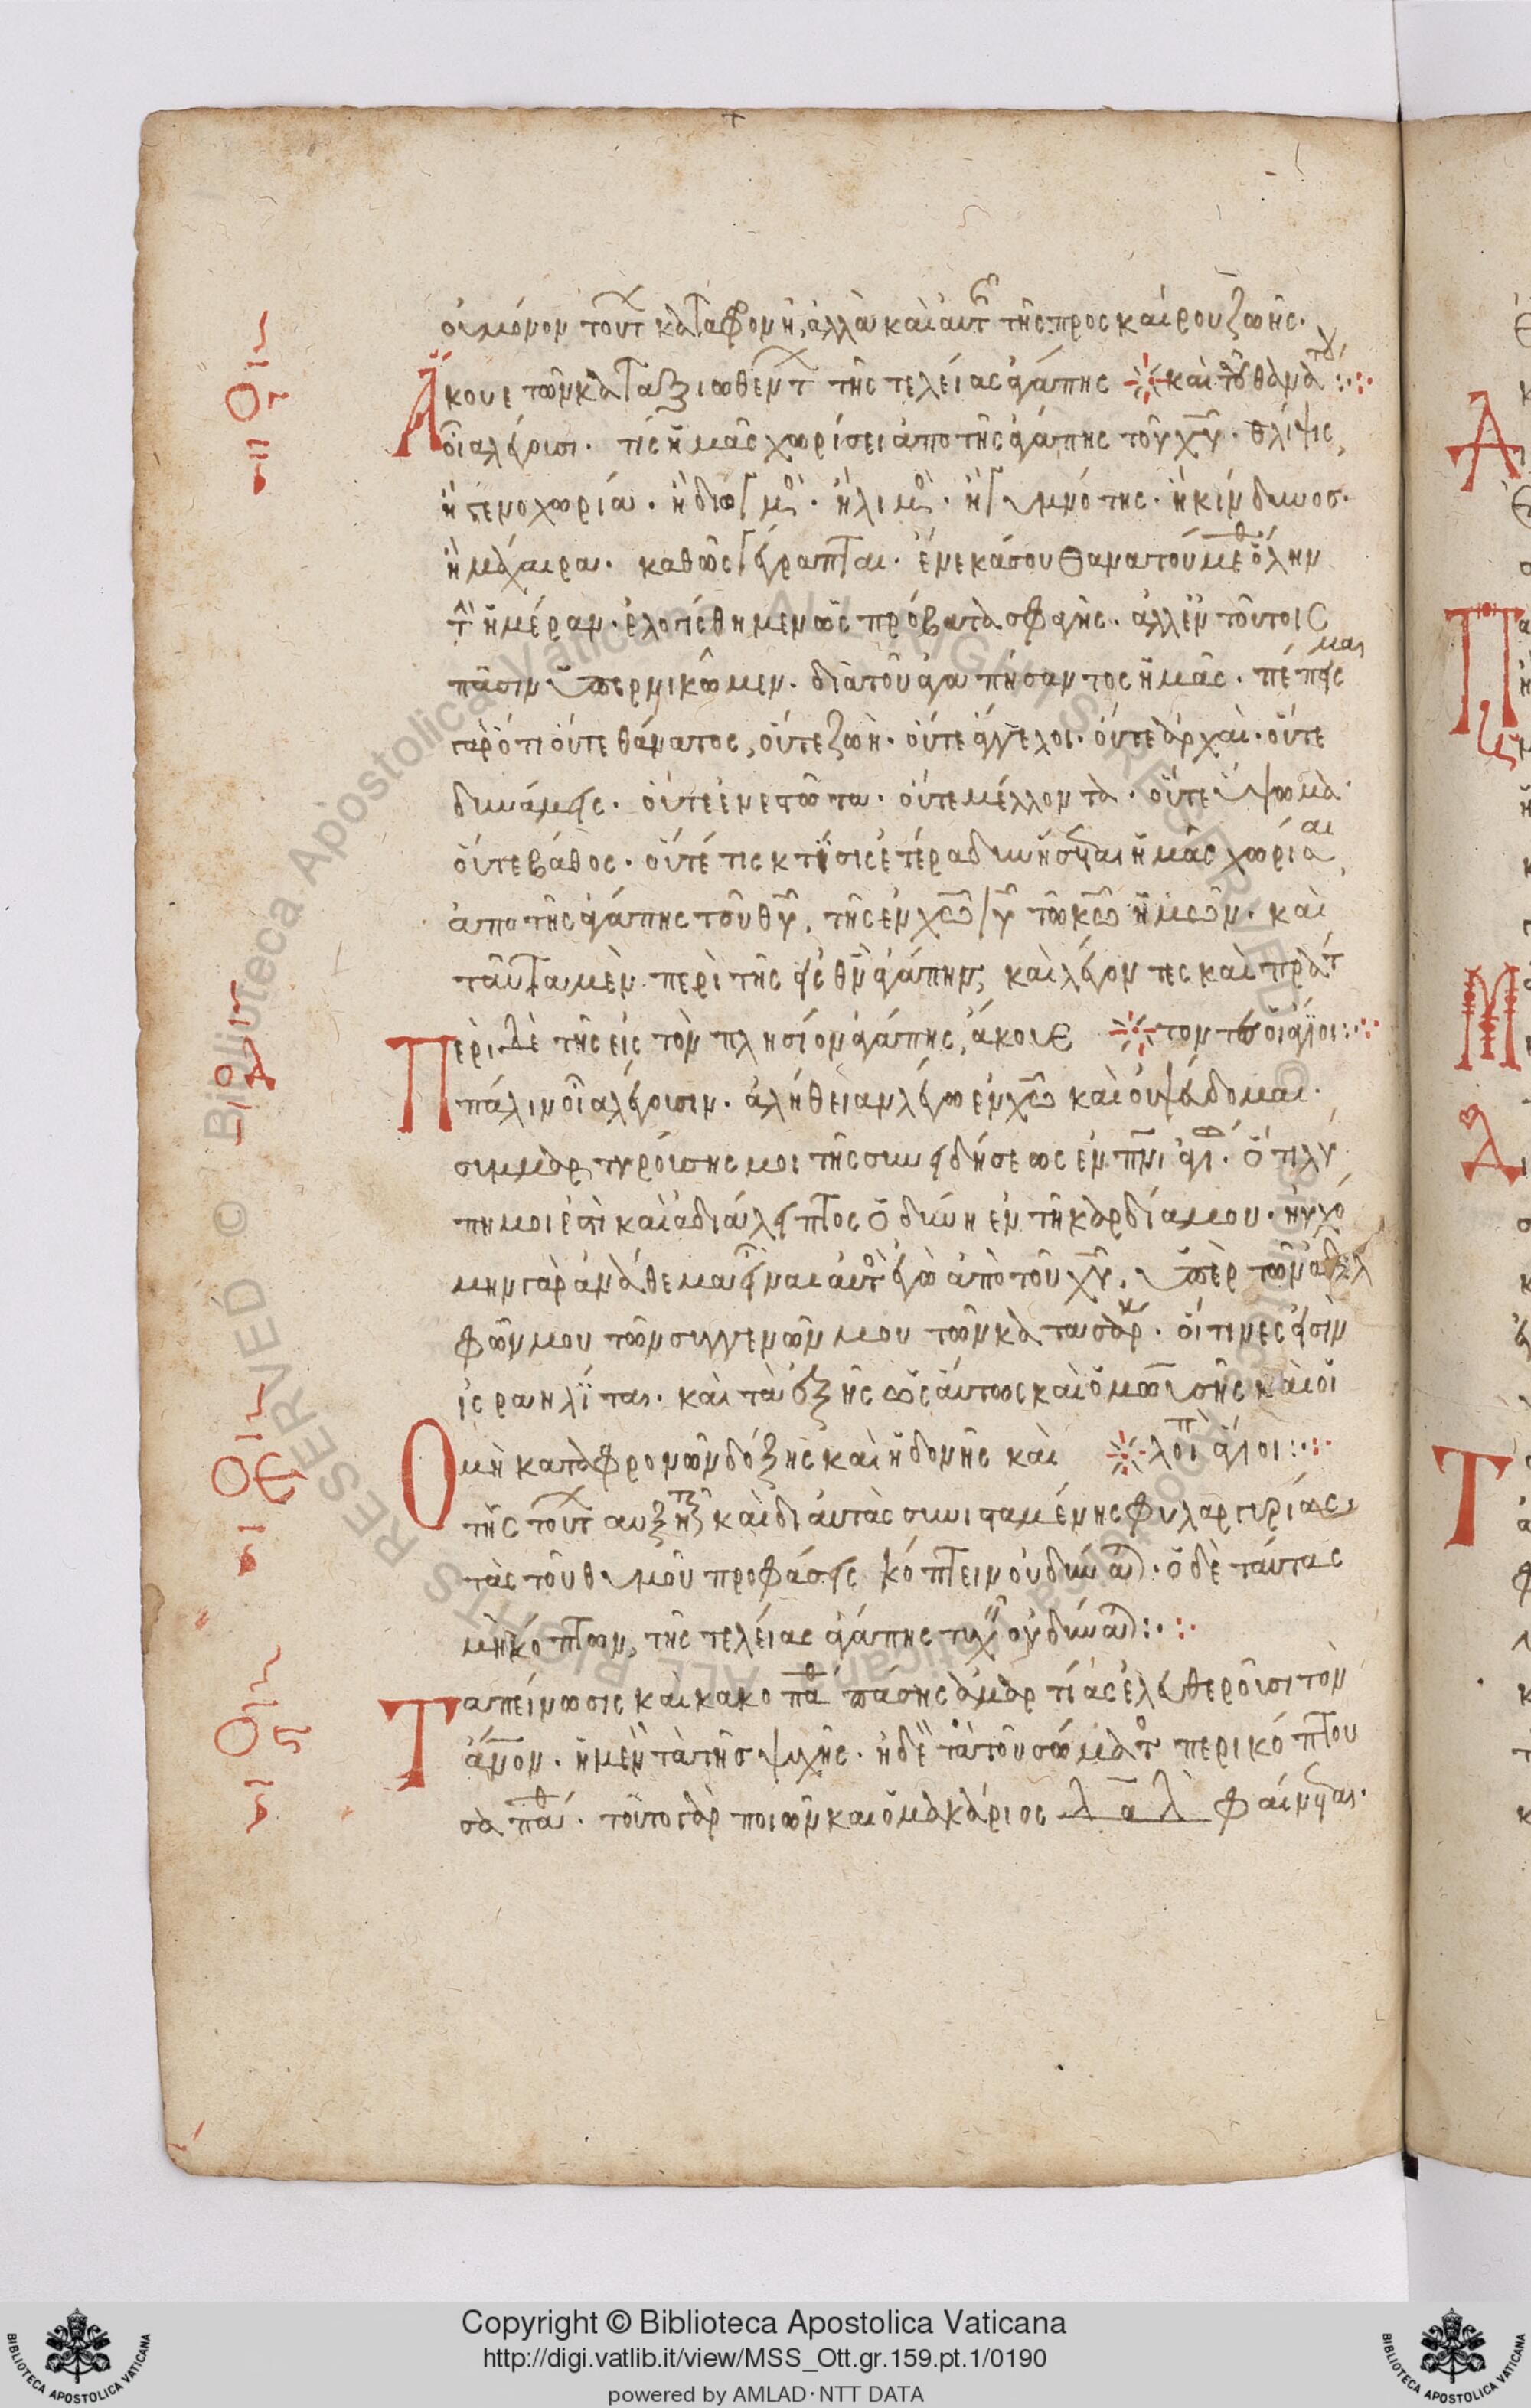 οὐ μόνον τούτ καταφρονῆ, ἀλλὰ καὶ αὐτ τῆς προσκαίρου ζωῆς.
Ἄκουε τῶν καταξιωθεντ τῆς τελείας ἀγάπης
καὶ τοῦ θανάτου
οἷα λέγουσι. τίς ἡμᾶς χωρίσει ἀπὸ τῆς ἀγάπης τοῦ χυ. θλίψις,
ἢ στενοχωρία. ἢ διωγμὸς. ἢ λιμὸς. ἢ γυμνότης. ἢ κίνδυνος.
ἢ μάχαιρα. καθὼς γέγραπται. ἕνεκά σου θανατούμεθ ὅλην
τὴν ἡμέραν. ἐλογίσθημεν ὡς πρόβατα σφαγῆς. ἀλλ' ἐν τούτοις
πᾶσιν ὑπερνικῶμεν. διὰ τοῦ ἀγαπήσαντος ἡμᾶς. πέπεισμαι
γὰρ ὅτι οὔτε θάνατος, οὔτε ζωὴ. οὔτε ἄγγελοι. οὔτε ἀρχαὶ. οὔτε
δυνάμεις. οὔτε ἐνεστῶτα. οὔτε μέλλοντα. οὔτε ὕψωμα
οὔτε βάθος. οὔτέ τις κτίσις ἑτέρα δυνήσεται ἡμᾶς χωρίσαι
ἀπὸ τῆς ἀγάπης τοῦ θυ, τῆς ἐν χω ιυ τῶ κω ἡμῶν. καὶ
ταῦτα μὲν περὶ τῆς εἰς θν ἀγάπην, καὶ λέγοντες καὶ πράτ
Περὶ δὲ τῆς εἰς τὸν πλησίον ἀγάπης, ἄκουε
τοντες οἱ ἅγιοι
πάλιν οἷα λέγουσιν. ἀλήθειαν λέγω ἐν χω καὶ οὐ ψεύδομαι.
συμμαρτυρούσης μοι τῆς συνειδήσεως ἐν πνι ἁγίω. ὅτι λύ
πη μοι ἐστὶ καὶ ἀδιάλειπτος ὀδύνη ἐν τῇ καρδία μου. ηὐχό
μην γὰρ ἀνάθεμα εἶναι αὐτὸς ἐγὼ ἀπὸ τοῦ χυ, ὑπὲρ τῶν ἀδελ
φῶν μου τῶν συγγενῶν μου τῶν κατὰ σάρκ. οἵτινες εἰσὶν
ἰσραηλῖται. καὶ τὰ ἑξῆς ὡσαύτως καὶ ὁ μωυσῆς καὶ οἱ
Ὁ μὴ καταφρονῶν δόξης καὶ ἡδονῆς καὶ
λοιπὶ ἅγιοι
τῆς τούτ αὐξητικῆς καὶ δι' αὐτὰς συνισταμένης φυλαργυρίας,
τὰς τοῦ θυμοῦ προφάσεις κόπτειν οὐ δύναται. ὁ δὲ ταύτας
μὴ κόπτων, τῆς τελείας ἀγάπης τυχεῖν οὐ δύναται
Ταπείνωσις καὶ κακοπάθ πάσης ἁμαρτίας ἐλευθεροῦσι τὸν
ἄνον. ἡ μὲν τὰ τῆς ψυχῆς. ἡ δὲ τὰ τοῦ σώματ περικόπτου
σα πάθ. τοῦτο γὰρ ποιῶν καὶ ὁ μακάριος δᾶδ φαίνεται.
Copyright © Biblioteca Apostolica Vaticana
http://digi.vatlib.it/view/MSS_Ott.gr.159.pt.1/0190
powered by AMLAD·NTT DATA